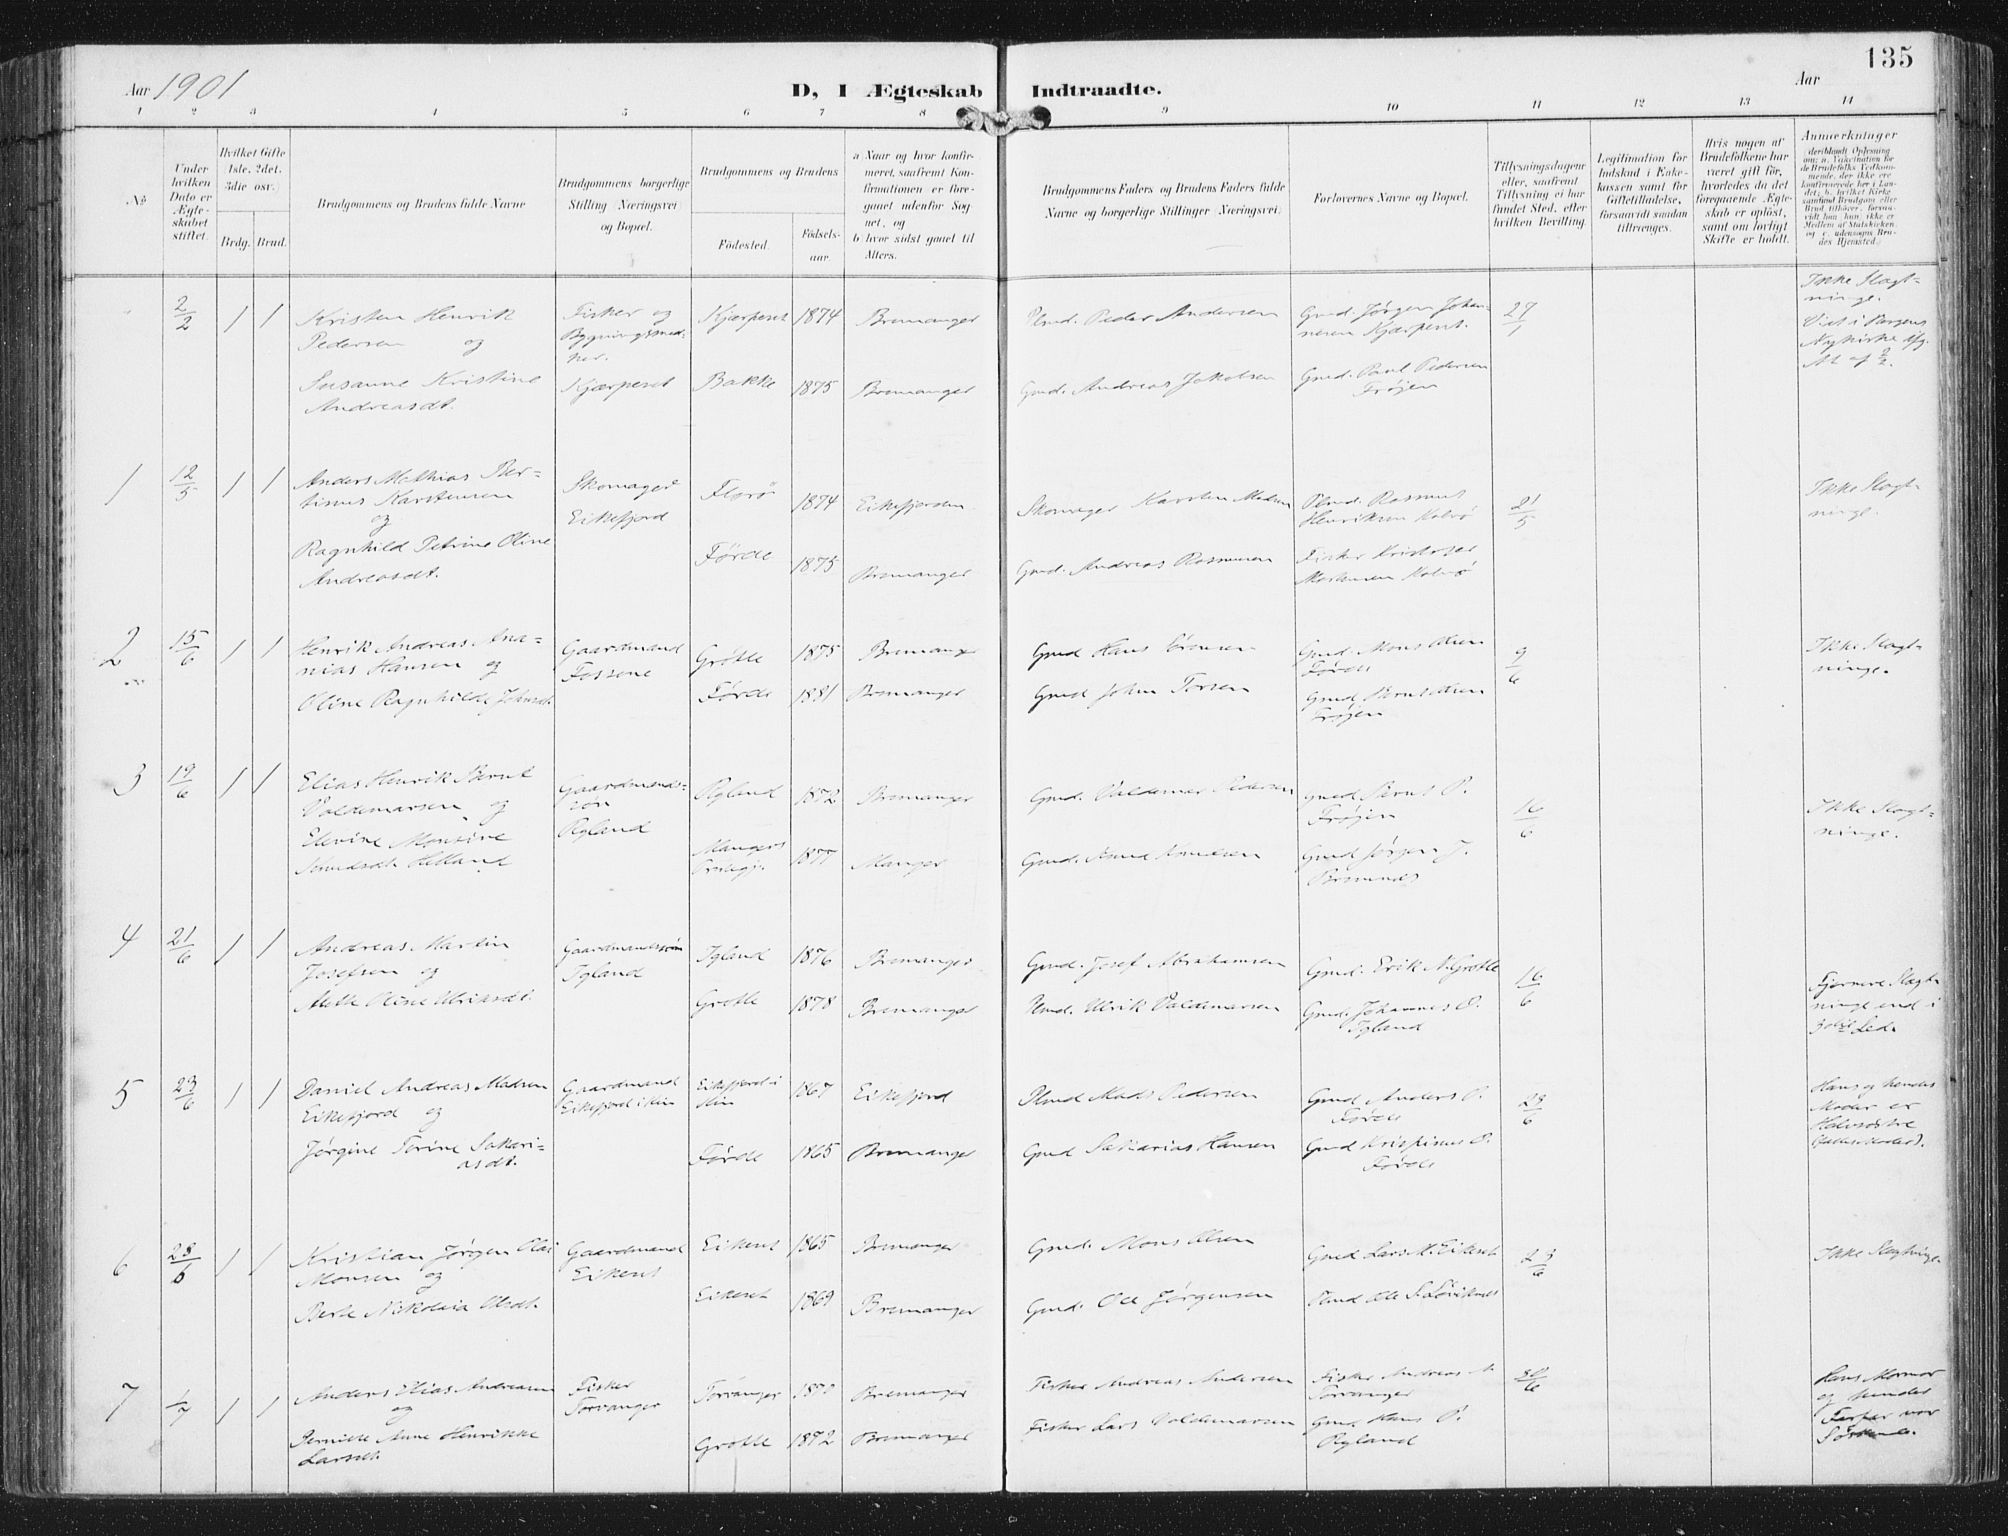 135
Aar 1901
D, I Ægteskab Indtraadte.
Aar
1 2 3 4 5 6 7 8 9 10 11 12 13 14
No
Under hvilken Dato er Ægteskabet stiftet.
Hvilket Gifte 1ste. 2det. 3die osv.
Brdg. Brud.
Brudgommens og Brudens fulde Navne
Brudgommens borgerlige Stilling (Næringsvei) og Bopæl.
Brudgommens og Brudens
Fødested.
Fødselsaar.
a Naar og hvor konfirmeret, saafremt Konfirmationen er foregaaet udenfor Sognet, og
b hvor sidst gaaet til Alters.
Brudgommens Faders og Brudens Faders fulde Navne og borgerlige Stillinger (Næringsvei)
Forlovernes Navne og Bopæl.
Tillysningsdagene eller, saafremt Tillysning ei har fundet Sted, efter hvilken Bevilling.
Legitimation for Indskud i Enkekassen samt for Giftetilladelse, forsaavidt saadan tiltrænges.
Hvis nogen af Brudefolkene har været gift før, hvorledes da det foregaaende Ægteskab er opløst, samt om lovligt Skifte er holdt.
Anmærkninger
2/2 1 1 Kristen Henrik Fisker og Kjærpeset 1874 Bremanger Peder Andersen Gmd. Jørgen Johan- 27/1 Ikke Slagt-
Pedersen og Bygningssned- nesen Kjærpeset. ninge.
ker.
Susanne Kristine Kjærpeset Bakke 1875 Bremanger Gmd. Andreas Jakobsen Gmd. Paul Pedersen
Andreasdt. Frøjen
1 12/5 1 1 Anders Mathias Ber- Skomager Florø 1874 Eikefjorden Skomager Karsten Madsen Rasmus 21/5 Ikke Slagt-
tinus Karstensen Eikefjord Henriksen Kalvø ninge.
og
Ragnhild Petrine Oline Førde 1875 Bremanger Gmd. Andreas Rasmussen Fisker
Andreasdt. Kalvø
2 15/6 1 1 Henrik Andreas Ana- Gaardmand Grotle 1875 Bremanger Gmd Hans Gmd. Mons Olsen 9/6 Ikke Slagt-
nias Hansen og Førde ninge.
Oline Ragnhilde Johnsdt. Førde 1881 Bremanger Gmd John Gmd Bernt Olsen
Frøjen
3 19/6 1 1 Elias Henrik Bernt Gaardmands- Ryland 1872 Bremanger Gmd. Valdemar Pedersen Gmd Bernt P. 16/6 Ikke Slagt-
Valdemarsen og søn Frøjen ninge.
Elevine Monsine Ryland Mangers 1877 Manger Gmd. Knud Knudsen Gmd Jørgen J.
Knudsdt. Helland Præstegj.
4 21/6 1 1 Andreas Martin Gaardmandssøn Igland 1876 Bremanger Gmd. Josef Abrahamsen Gmd. Erik N. Grotle 16/6 Fjernere Slagt-
Josefsen og Igland ninge end i
Mette Oline Ulriksdt. Grotle 1878 Bremanger Ulrik Valdemarsen Gmd. Johannes O. Led.
Igland
5 23/6 1 1 Daniel Andreas Madsen Gaardmand Eikefjord i 1867 Eikefjord Mads Pedersen Gmd Anders P. 23/6 Hans og hendes
Eikefjord og Eikefjord i Kin Kin Førde Moder er
Jørgine Torine Sakari- Førde 1865 Bremanger Gmd Sakarias Hansen Gmd Krispinus P. Halvsøstre
asdt. Førde
6 23/6 1 1 Kristian Jørgen Olai Gaardmand Eikeset 1865 Bremanger Gmd. Mons Olsen Gmd Lars M. Eikeset 23/6 Ikke Slagtninge.
Monsen og Eikeset
Berte Nikolaia Olsdt. Eikeset 1869 Bremanger Gmd. Ole Jørgensen Ole
7 1/7 1 1 Anders Elias Andreasen Fisker Torvanger 1870 Bremanger Fisker Andreas Andersen Fisker Andreas A 30/6 Hans Mormor
og Torvanger Torvanger og hendes
Pernille Anne Henrikke Grotle 1872 Bremanger Fisker Lars Valdemarsen Gmd. Hans P. Farfar var
Larsdt. Rylland Søskende.